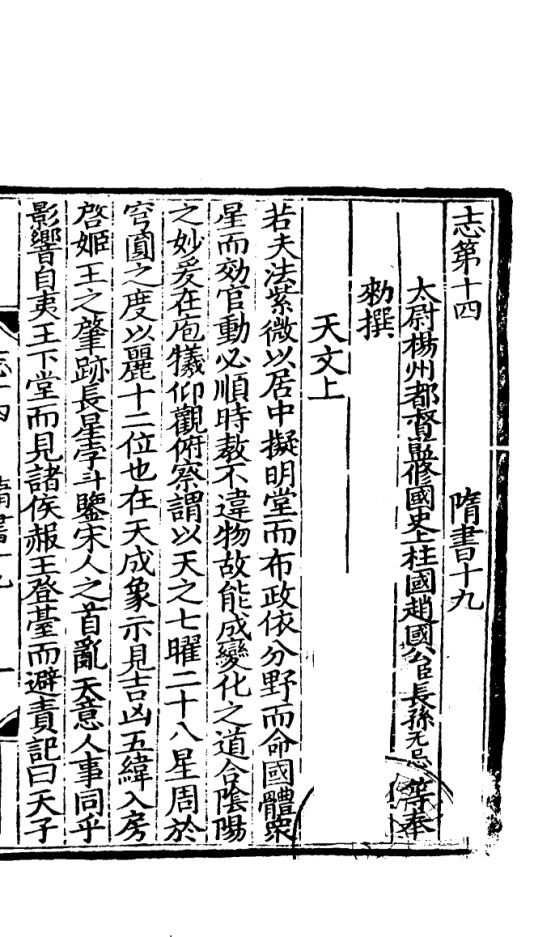 志第十四　隋書十九
太尉楊州都督監修國史上柱國趙國公臣長孫无忌等奉
勑撰
天文上
若夫法紫微以居中擬明堂而布政依分野而命國體衆
星而効官動必順時敎不違物故能成變化之道合陰陽
之妙爰在庖犧仰觀俯察謂以天之七曜二十八星周於
穹圓之度以麗十二位也在天成象示見吉凶五緯入房
啓姬王之肇跡長星孛斗鑒宋人之首亂天意人事同乎
影響自夷王下堂而見諸侯赧王登臺而避責記曰天子